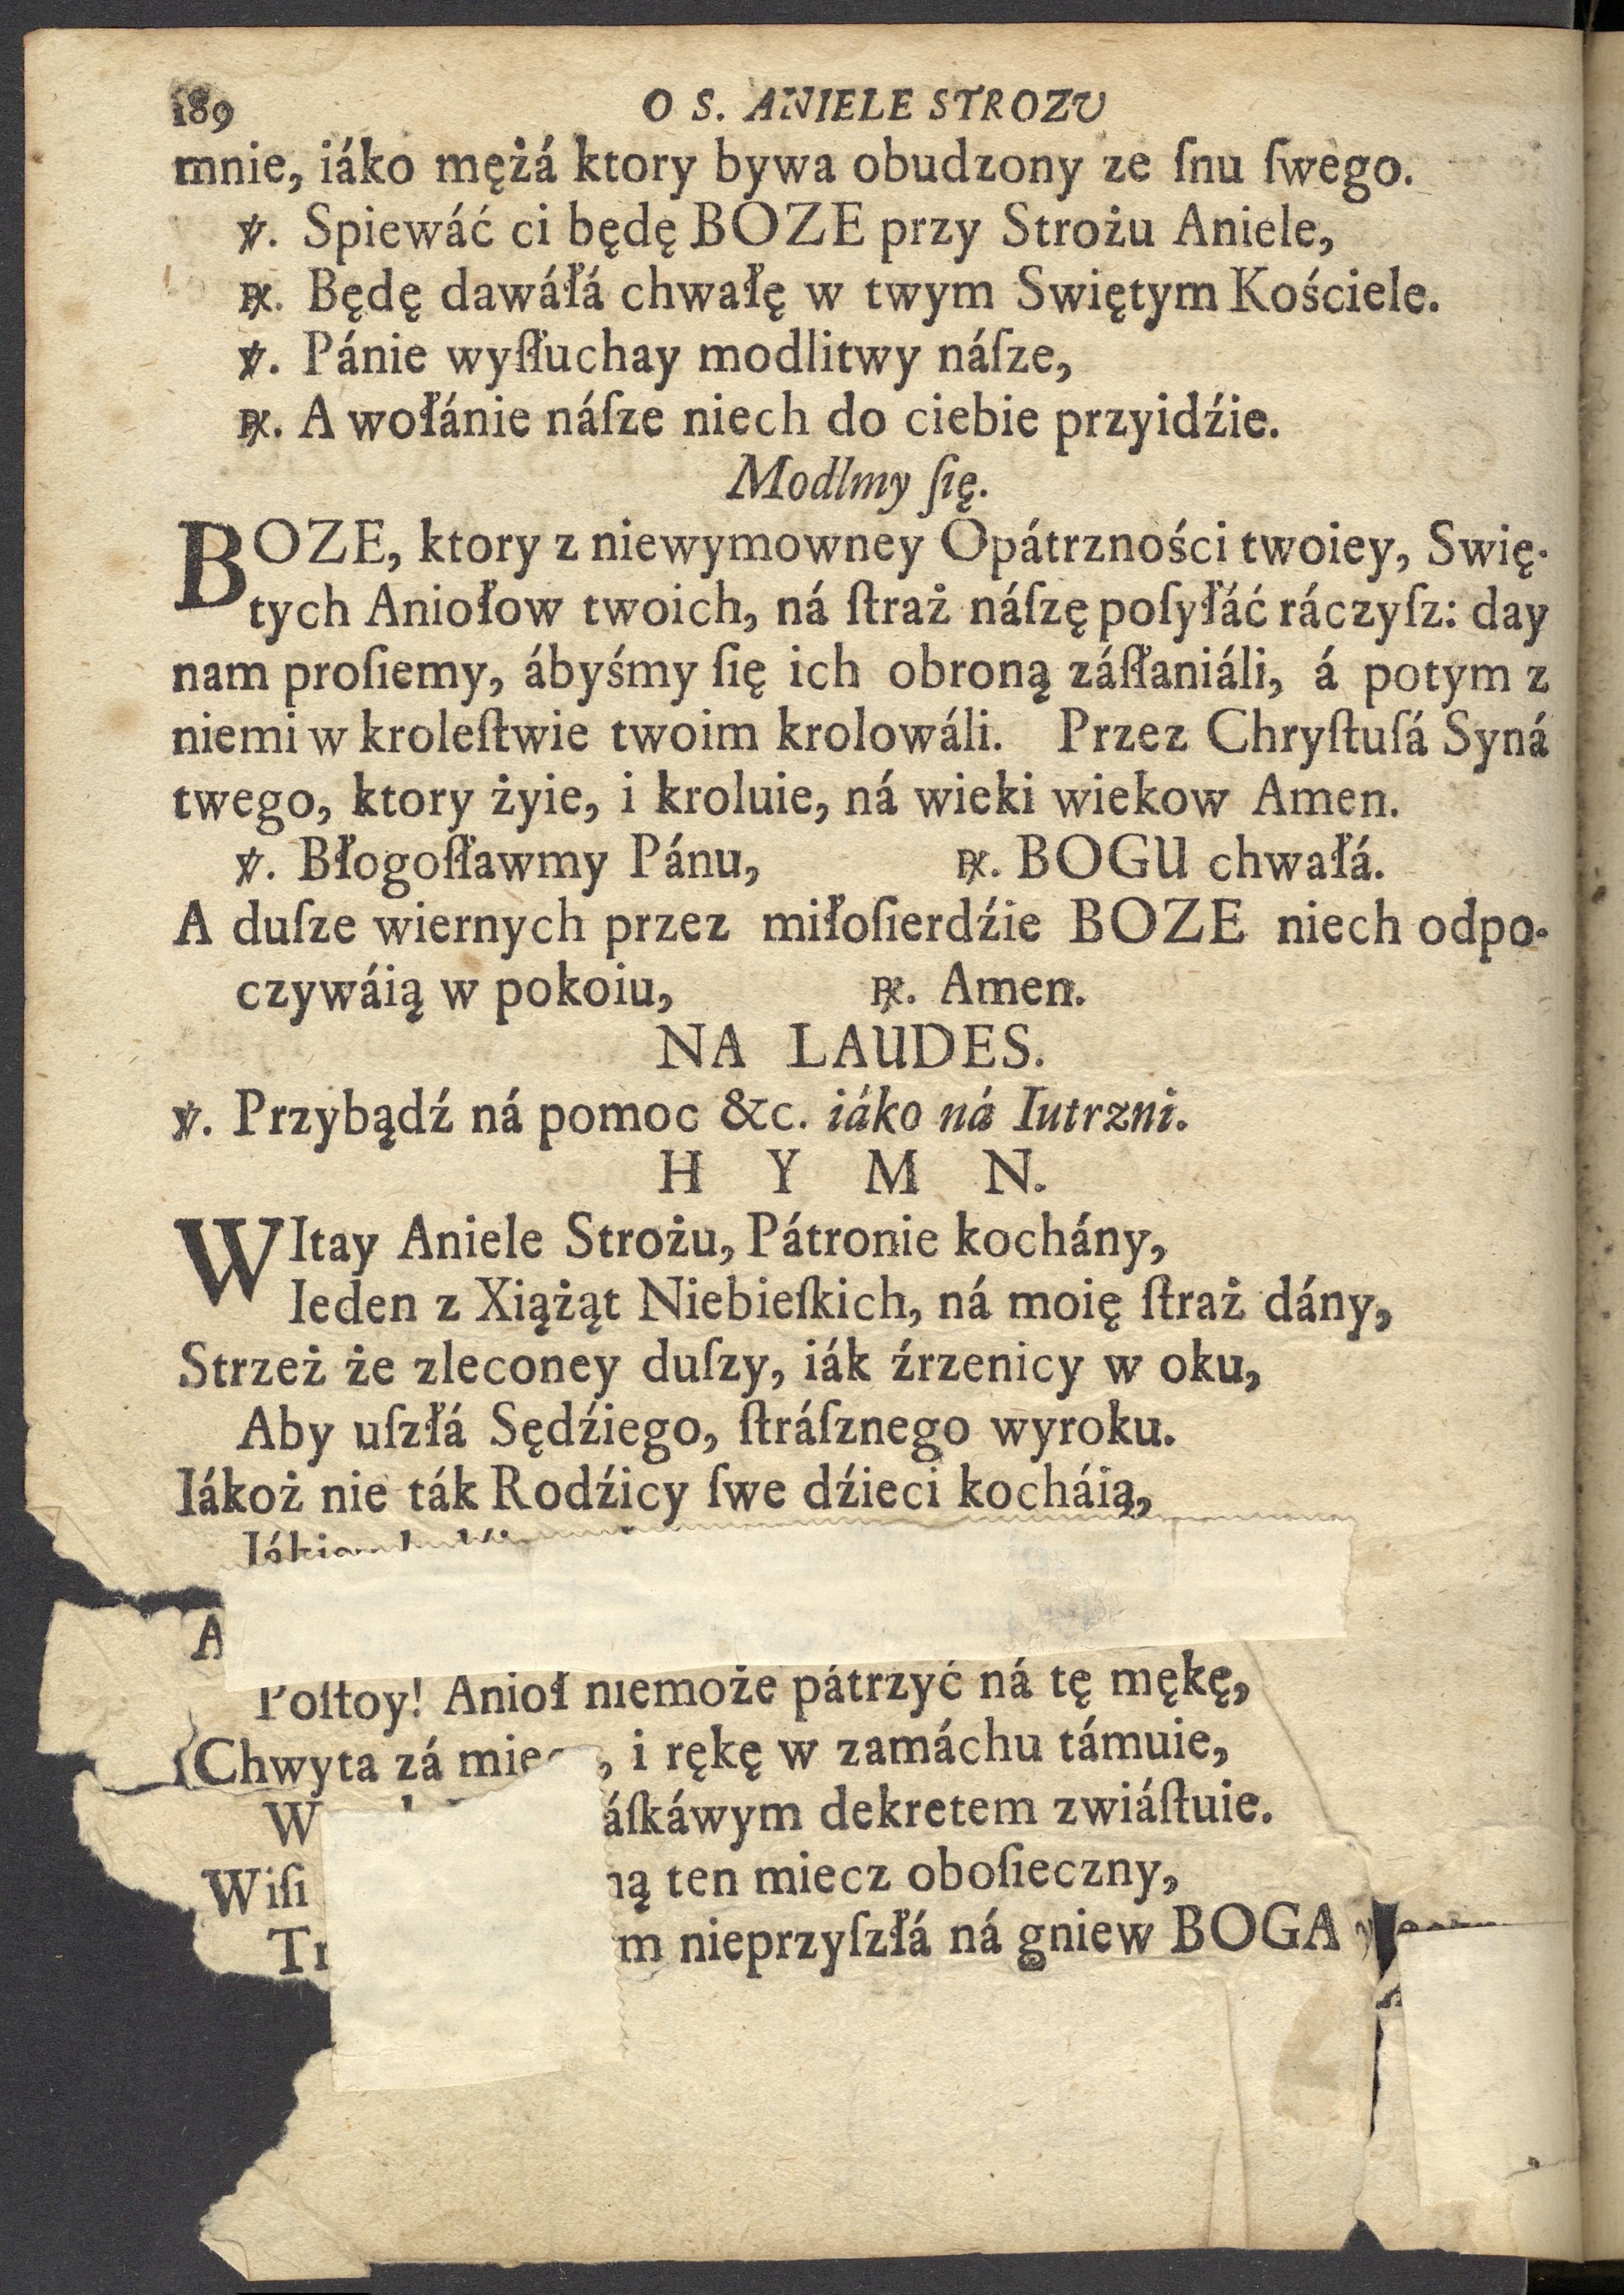 189 O S. ANIELE STROZU
mnie, iáko mężá ktory bywa obudzony ze ſnu ſwego.
℣. Spiewáć ci będę BOZE przy Strożu Aniele,
℟. Będę dawáłá chwałę w twym Swiętym Kościele.
℣. Pánie wyſłuchay modlitwy náſze,
℟. A wołánie náſze niech do ciebie przyidźie.
Modlmy ſię.
BOZE, ktory z niewymowney Opátrzności twoiey, Swię-
tych Aniołow twoich, ná ſtraż náſzę poſyłáć ráczyſz: day
nam proſiemy, ábyśmy ſię ich obroną záſłaniáli, á potym z
niemi w kroleſtwie twoim krolowáli. Przez Chryſtuſá Syná
twego, ktory żyie, i kroluie, ná wieki wiekow Amen.
℣. Błogoſławmy Pánu, ℟. BOGU chwałá.
A duſze wiernych przez miłoſierdźie BOZE niech odpo-
czywáią w pokoiu, ℟. Amen.
NA LAUDES.
℣. Przybądź ná pomoc &c. iáko ná Iutrzni.
H Y M N.
WItay Aniele Strożu, Pátronie kochány,
Ieden z Xiążąt Niebieſkich, ná moię ſtraż dány,
Strzeż że zleconey duſzy, iák źrzenicy w oku,
Aby uſzłá Sędźiego, ſtráſznego wyroku.
Iákoż nie ták Rodźicy ſwe dźieci kocháią,
A
Poſtoy! Anioł niemoże pátrzyć ná tę mękę,
Chwyta zá , i rękę w zamáchu támuie,
W áſkáwym dekretem zwiáſtuie.
Wiſi ten miecz oboſieczny,
m nieprzyſzłá ná gniew BOGA